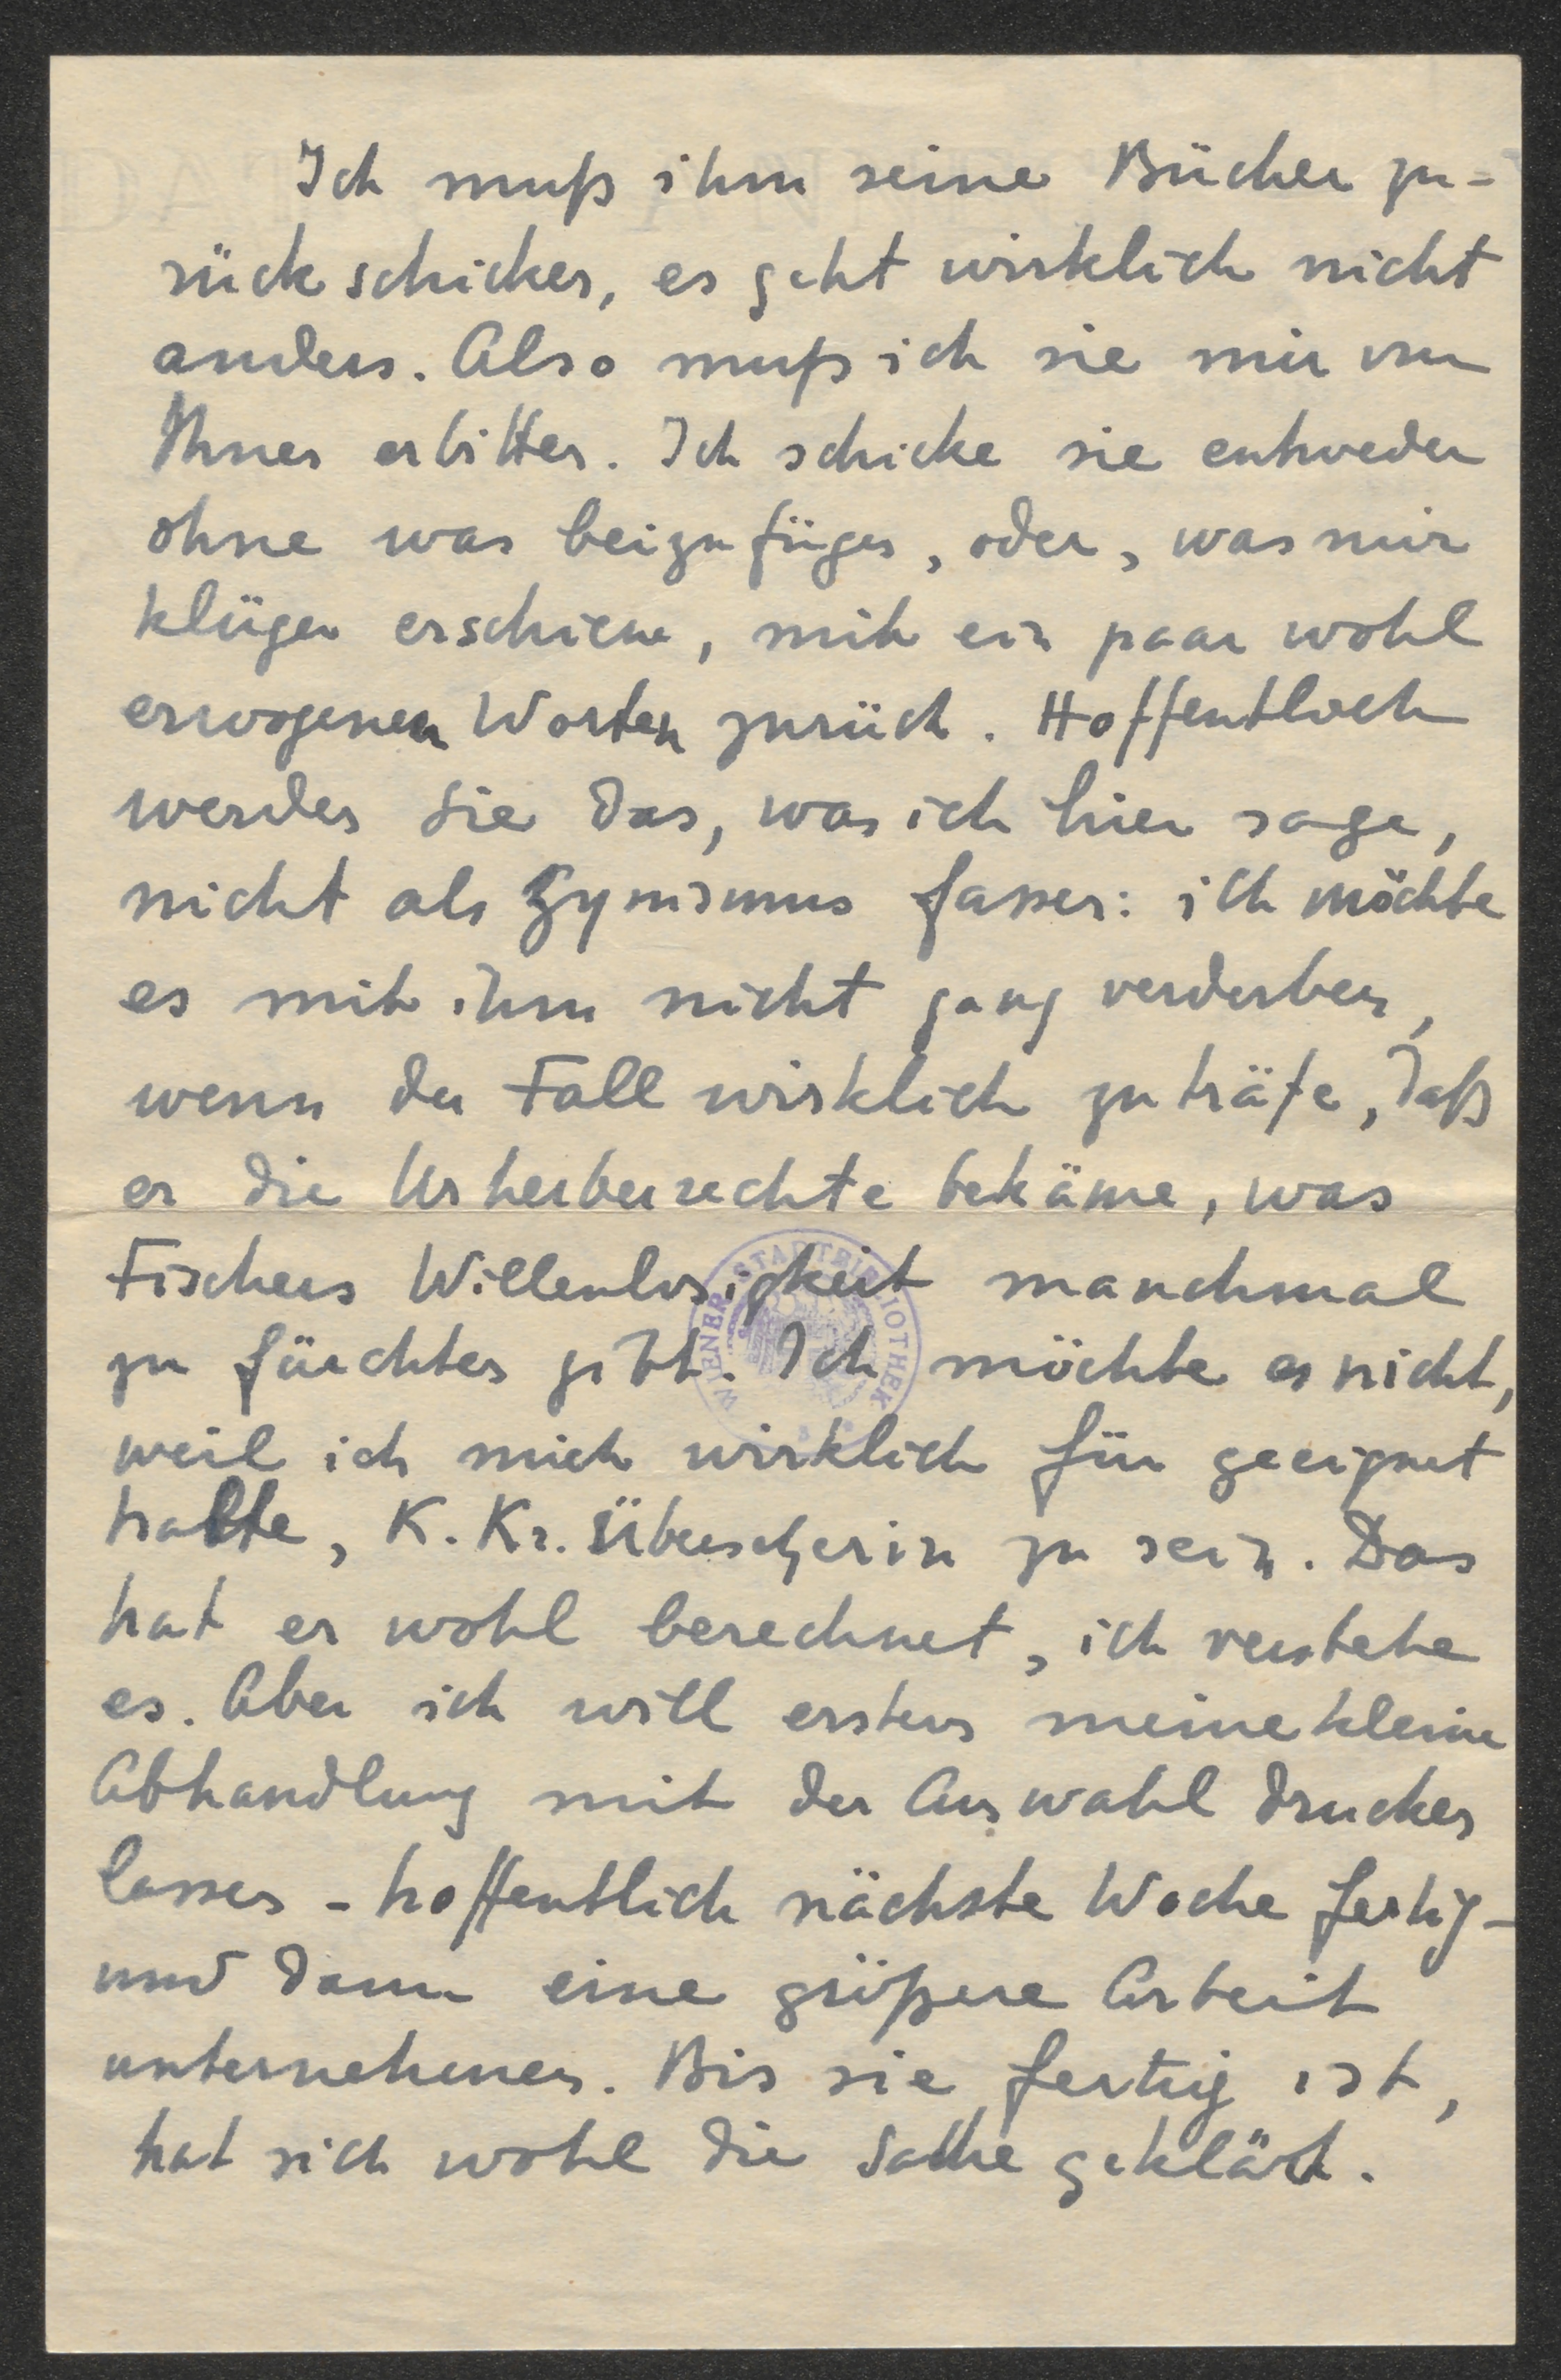 Ich muß ihm seine Bücher zu-
rückschicken, es geht wirklich nicht
anders. Also muß ich sie mir von
Ihnen erbitten. Ich schicke sie entweder
ohne was beizufügen, oder, was mir
klüger erschiene, mit ein paar wohl
erwogenen Worten zurück. Hoffentlich
werden Sie das, was ich hier sage,
nicht als Zynismus fassen: ich möchte
es mit ihm nicht ganz verderben,
wenn der Fall wirklich zuträfe, daß
er die Urheberrechte bekäme, was
Fischers Willenlosigkeit manchmal
zu fürchten gibt. Ich möchte es nicht,
weil ich mich wirklich für geeignet
halte, K. Kr. Übersetzerin zu sein. Das
hat er wohl berechnet, ich verstehe
es. Aber ich will erstens meine kleine
Abhandlung mit der Auswahl drucken
lassen - hoffentlich nächste Woche fertig -
und dann eine größere Arbeit
unternehmen. Bis sie fertig ist,
hat sich wohl die Sache geklärt.
WIENER STADTBIBLIOTHEK